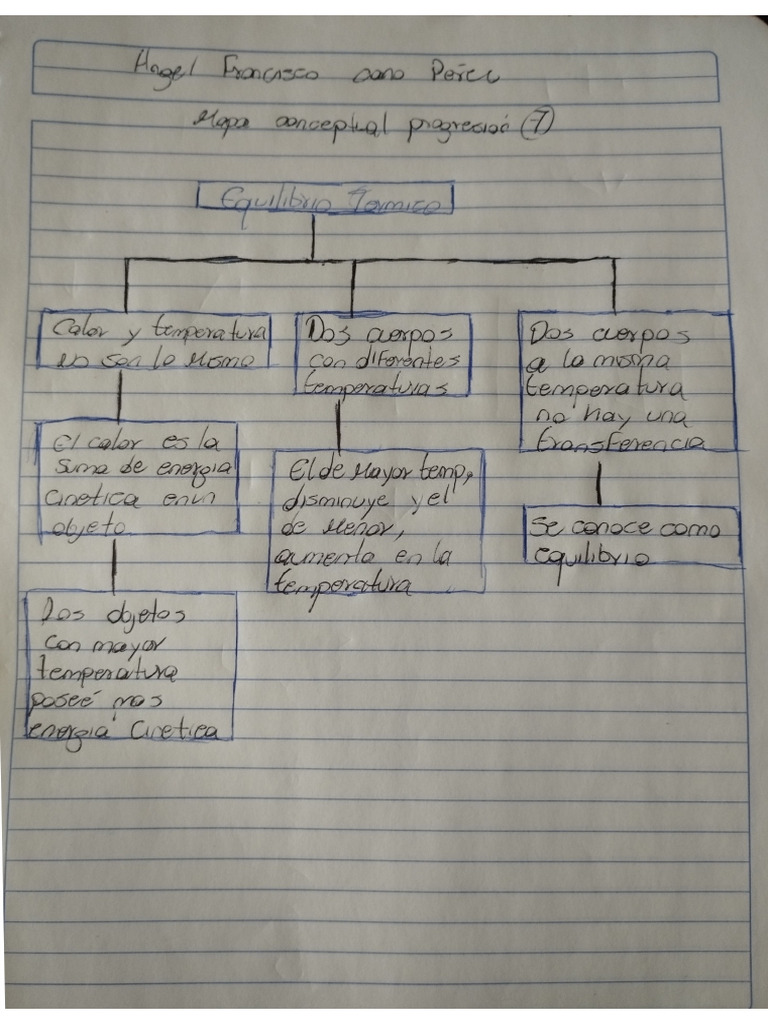 Angel Francisco Cano Perez
Mapa conceptual progresion 7
Equilibrio Termico
Calor y temperatura
No son lo mismo
El calor es la
suma de energia
cinetica en un
objeto
Los objetos
con mayor
temperatura
poseé mas
energia cinetica
Dos cuerpos
con diferentes
temperaturas
El de Mayor temp,
disminuye y el
de Menor,
aumenta en la
temperatura
Dos cuerpos
a la misma
temperatura
no hay una
transferencia
Se conoce como
equilibrio